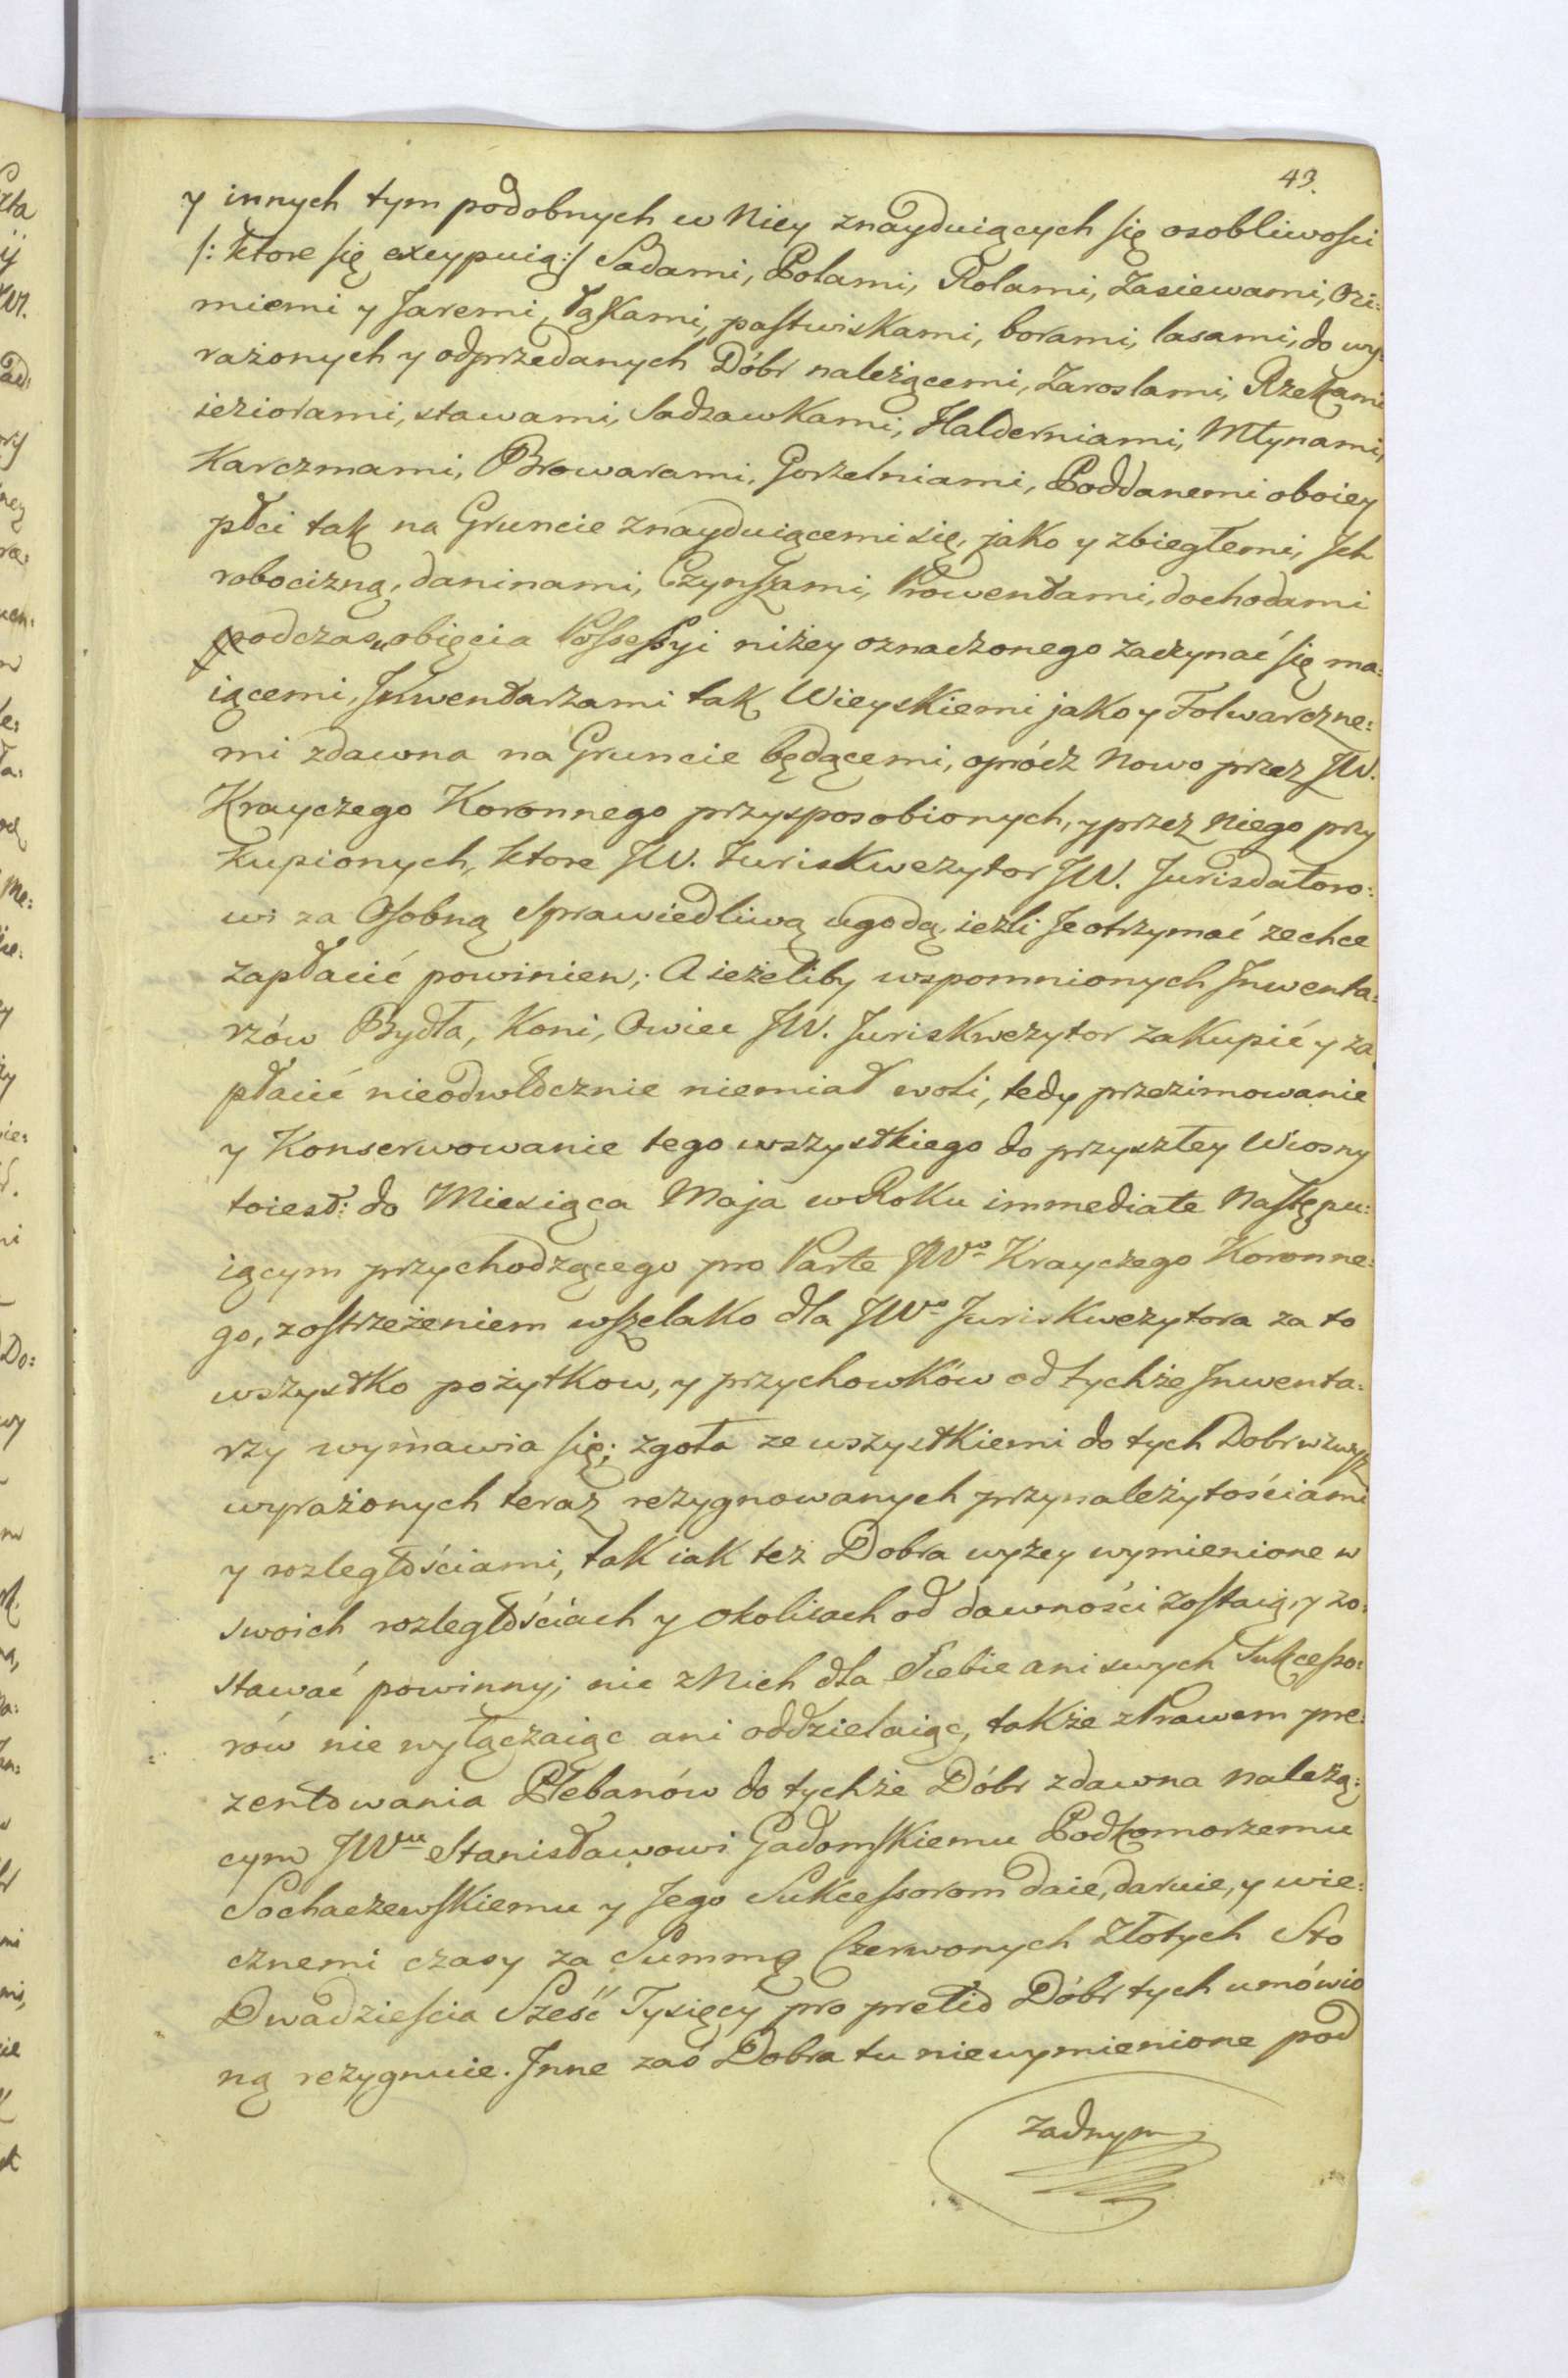 43.
y innych tym podobnych w Niey znayduiących się osobliwości
/: ktore się excypuią :/ Sadami, Polami, Rolami, Zasiewami, Ozi:
miemi y Jaremi, Łąkami, pastwiskami, borami, lasami, do wy:
rażonych y odprzedanych Dóbr należącemi, Zaroslami, Rzekami
ieziorami, stawami, Sadzawkami, Halderniami, Młynami,
Karczmami, Browarami, Gorzelniami, Poddanemi oboiey
płci tak na Gruncie znayduiącemi się, jako y zbiegłemi, Jch
robocizną, daninami, Czynszami, Prowentami, dochodami
podczas obięcia Possessyi niżey oznaczonego zaczynać się ma:
iącemi, Jnwentarzami tak Wieyskiemi jako y Folwarczne:
mi zdawna na Gruncie będącemi, oprócz Nowo przez JW.
Krayczego Koronnego przysposobionych, y przez Niego przy
kupionych, ktore JW. Juriskwezytor JW. Jurisdatoro:
wi za Osobną Sprawiedliwą ugodą, ieżli Je otrzymać zechce
zapłacić powinien; A ieżeliby wspomnionych Jnwenta:
rzów Bydła, Koni, Owiec JW. Juriskwezytor zakupić y za
płacić nieodwłócznie niemiał woli, tedy przezimowanie
y Konserwowanie tego wszystkiego do przyszłey Wiosny
toiest: do Miesiąca Maja w Roku immediate Następu:
iącym przychodzącego pro Parte JWo Krayczego Koronne:
go, zostrzeżeniem wszelako dla JWo Juriskwezytora za to
wszystko pożytkow, y przychowków od tychże Jnwenta:
rzy wymawia się; zgoła ze wszystkiemi do tych Dobr wzwyż
wyrażonych teraz rezygnowanych przynależytościami
y rozległościami, tak iak też Dobra wyżey wymienione w
swoich rozległościach y okolicach od dawności zostaią, y zo:
stawać powinny; nic z Nich dla Siebie ani swych Sukcesso:
rów nie wyłączaiąc ani oddzielaiąc, także z Prawem pre:
zentowania Plebanów do tychże Dóbr zdawna Należą:
cym JWmu Stanisławowi Gadomskiemu Podkomorzemu
Sochaczewskiemu y Jego Sukcessorom daie, daruie, y wie:
cznemi czasy za Summę Czerwonych Złotych Sto
Dwadzieścia Sześć Tysięcy pro pretio Dóbr tych umówio
ną rezygnuie. Jnne zaś Dobra tu niewymienione pod
żadnym